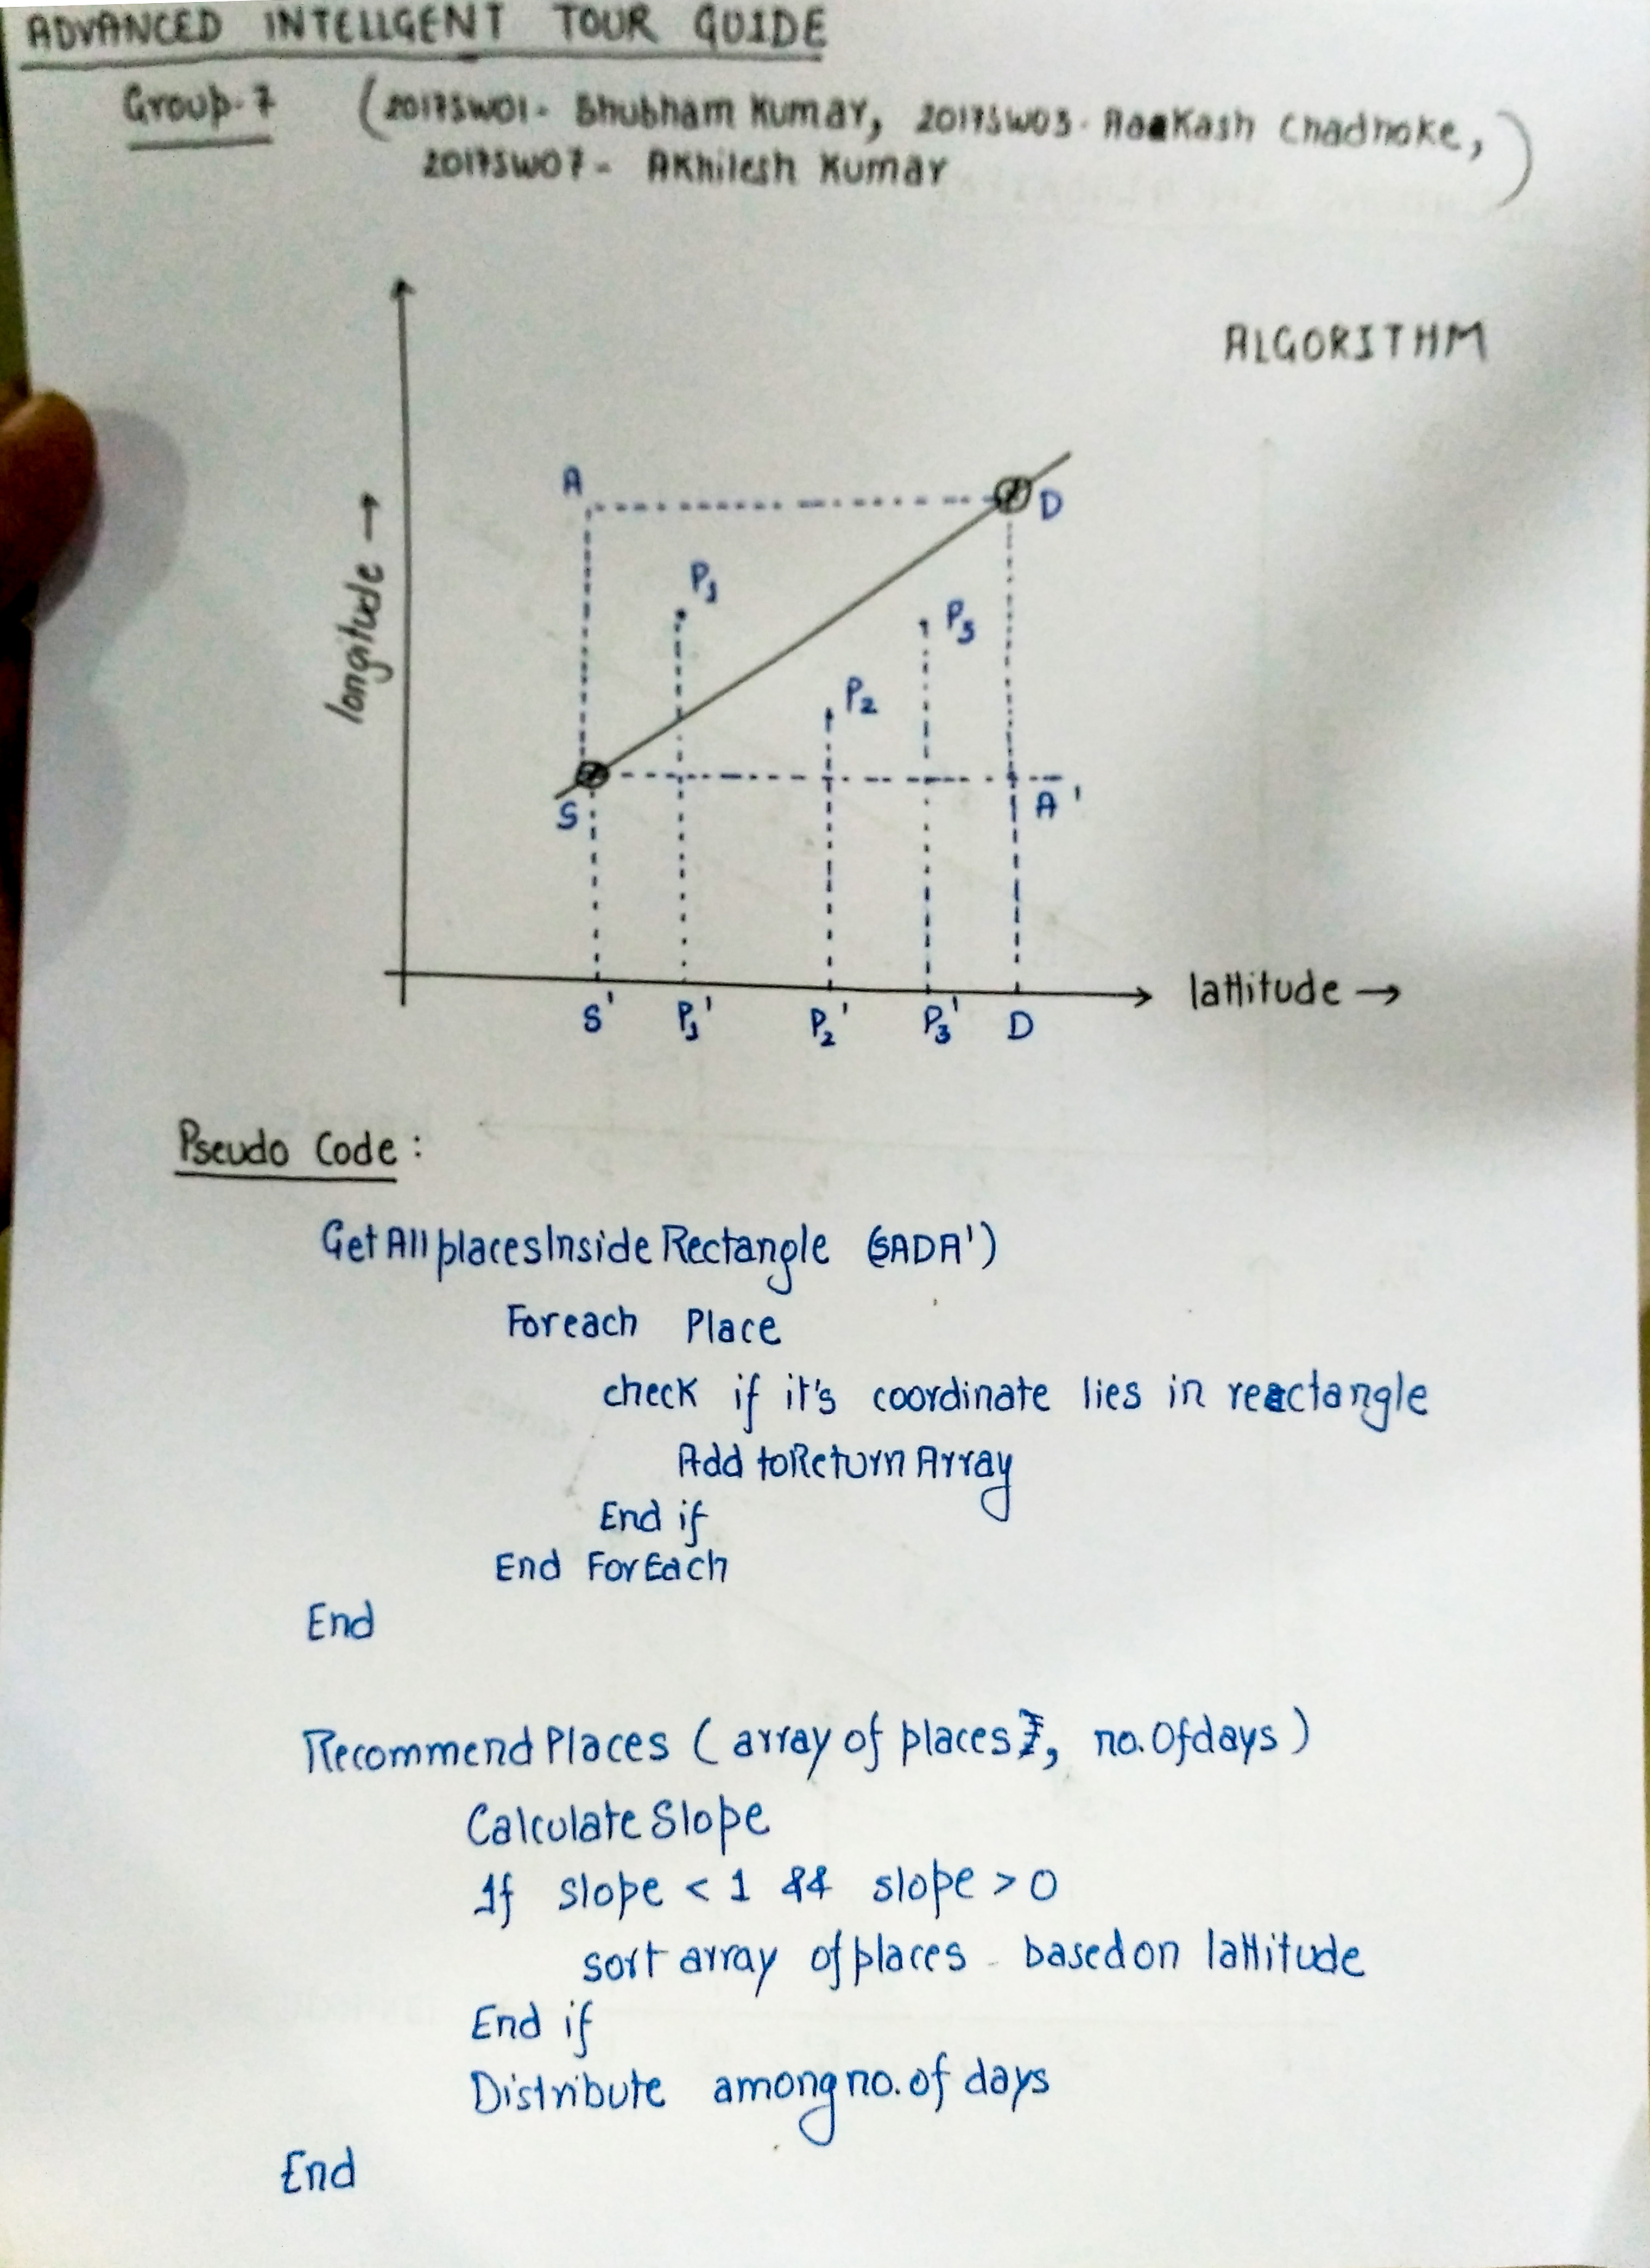 ADVANCED INTELLGENT TOUR GUIDE
Group-7 (2017SW01- Shubham Kumar, 2017SW03- Aakash Chadnoke,
2017SW07- Akhilesh Kumar)
ALGORITHM
A
D
P1
P3
longitude →
P2
S
A'
lattitude →
S' P1' P2' P3' D
Pseudo Code:
GetAllplacesInsideRectangle (SADA')
Foreach Place
check if it's coordinate lies in reactangle
Add toReturn Array
End if
End ForEach
End
Recommend Places (array of places, no. Of days)
Calculate Slope
If slope < 1 && slope > 0
sort array of places based on lattitude
End if
Distribute among no. of days
End